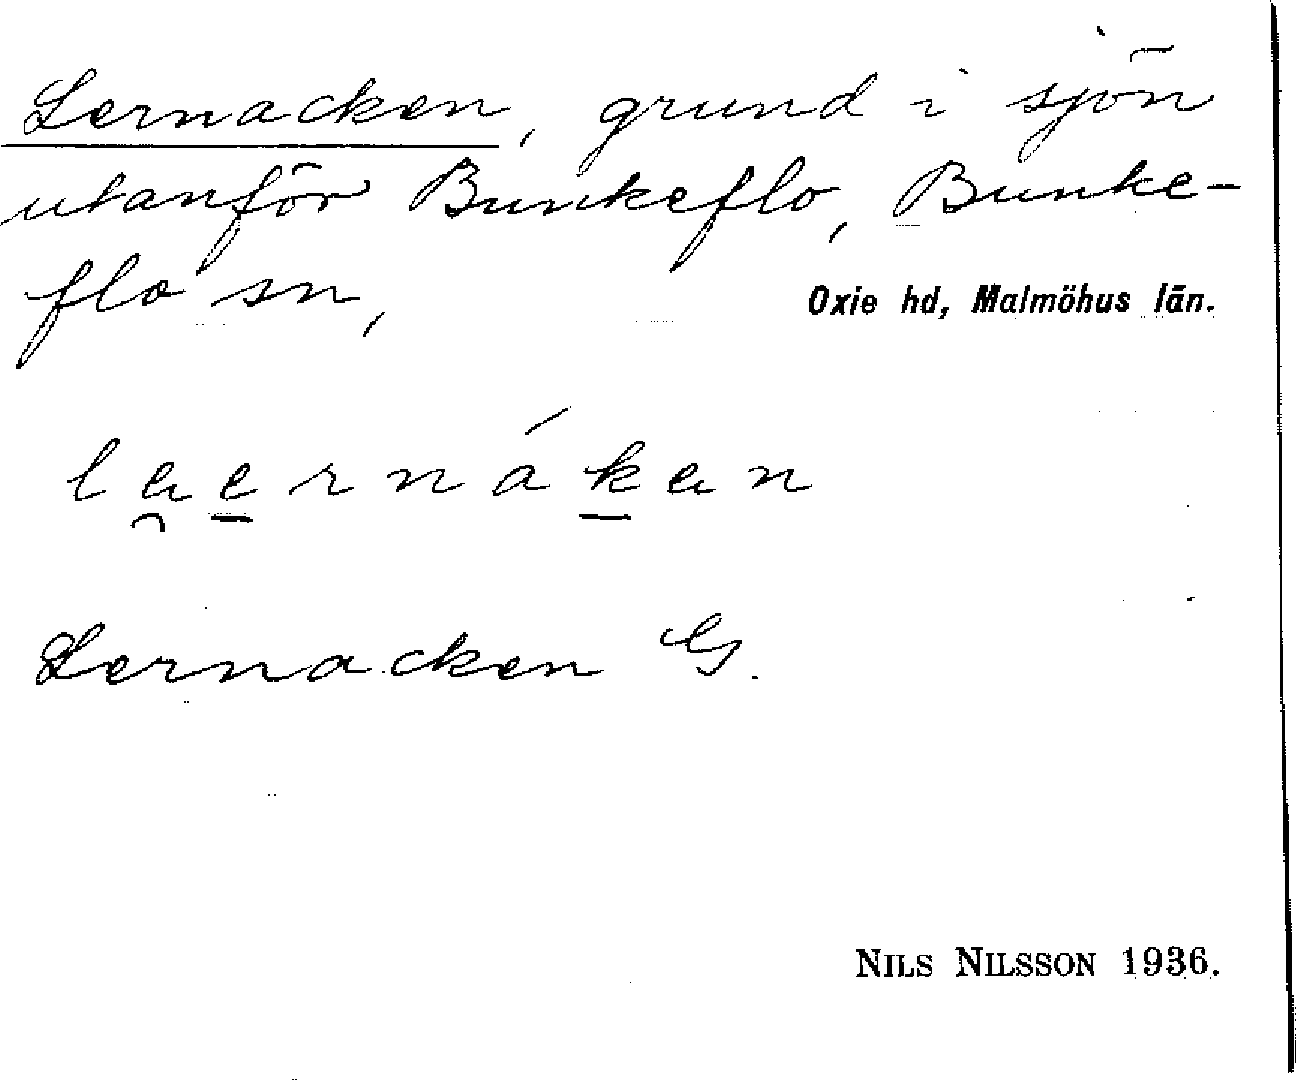 Lernacken, grund i sjön
utanför Bunkeflo, Bunke-
flo sn, Oxie hd, Malmöhus län.
Lernacken G.
NILS NILSSON 1936.